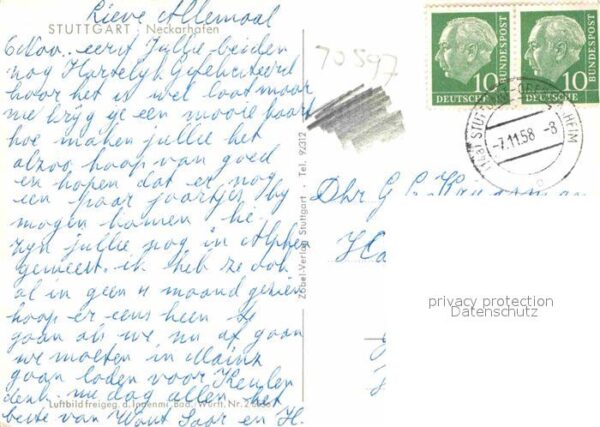 Lieve Allemaal
STUTTGART · Neckarhafen
6 Nov. eerst Jullie beiden
nog Hartelyk Gefeliciteerd
hoor het is wel laat maar
nu krijg je een mooie kaart
hoe maken jullie het
alzoo hoop van goed
en hopen dat er nog
een paar jaartjes by
mogen komen he
zyn jullie nog in Alphen
geweest. ik heb ze ook
al in geen 4 maand gezien
hoop er eens heen te
gaan als we nu af gaan
we moeten in Mainz
gaan laden voor Keulen
denk. nu dag allen het
beste van Wout Saar en H.
Luftbildfreigeg. d. Innenmi. Bad. Württ. Nr.
Zobel-Verlag Stuttgart · Tel. 92312
70597
10
DEUTSCHE BUNDESPOST
10
DEUTSCHE BUNDESPOST
-7.11.58 -8
Dhr G
privacy protection
Datenschutz